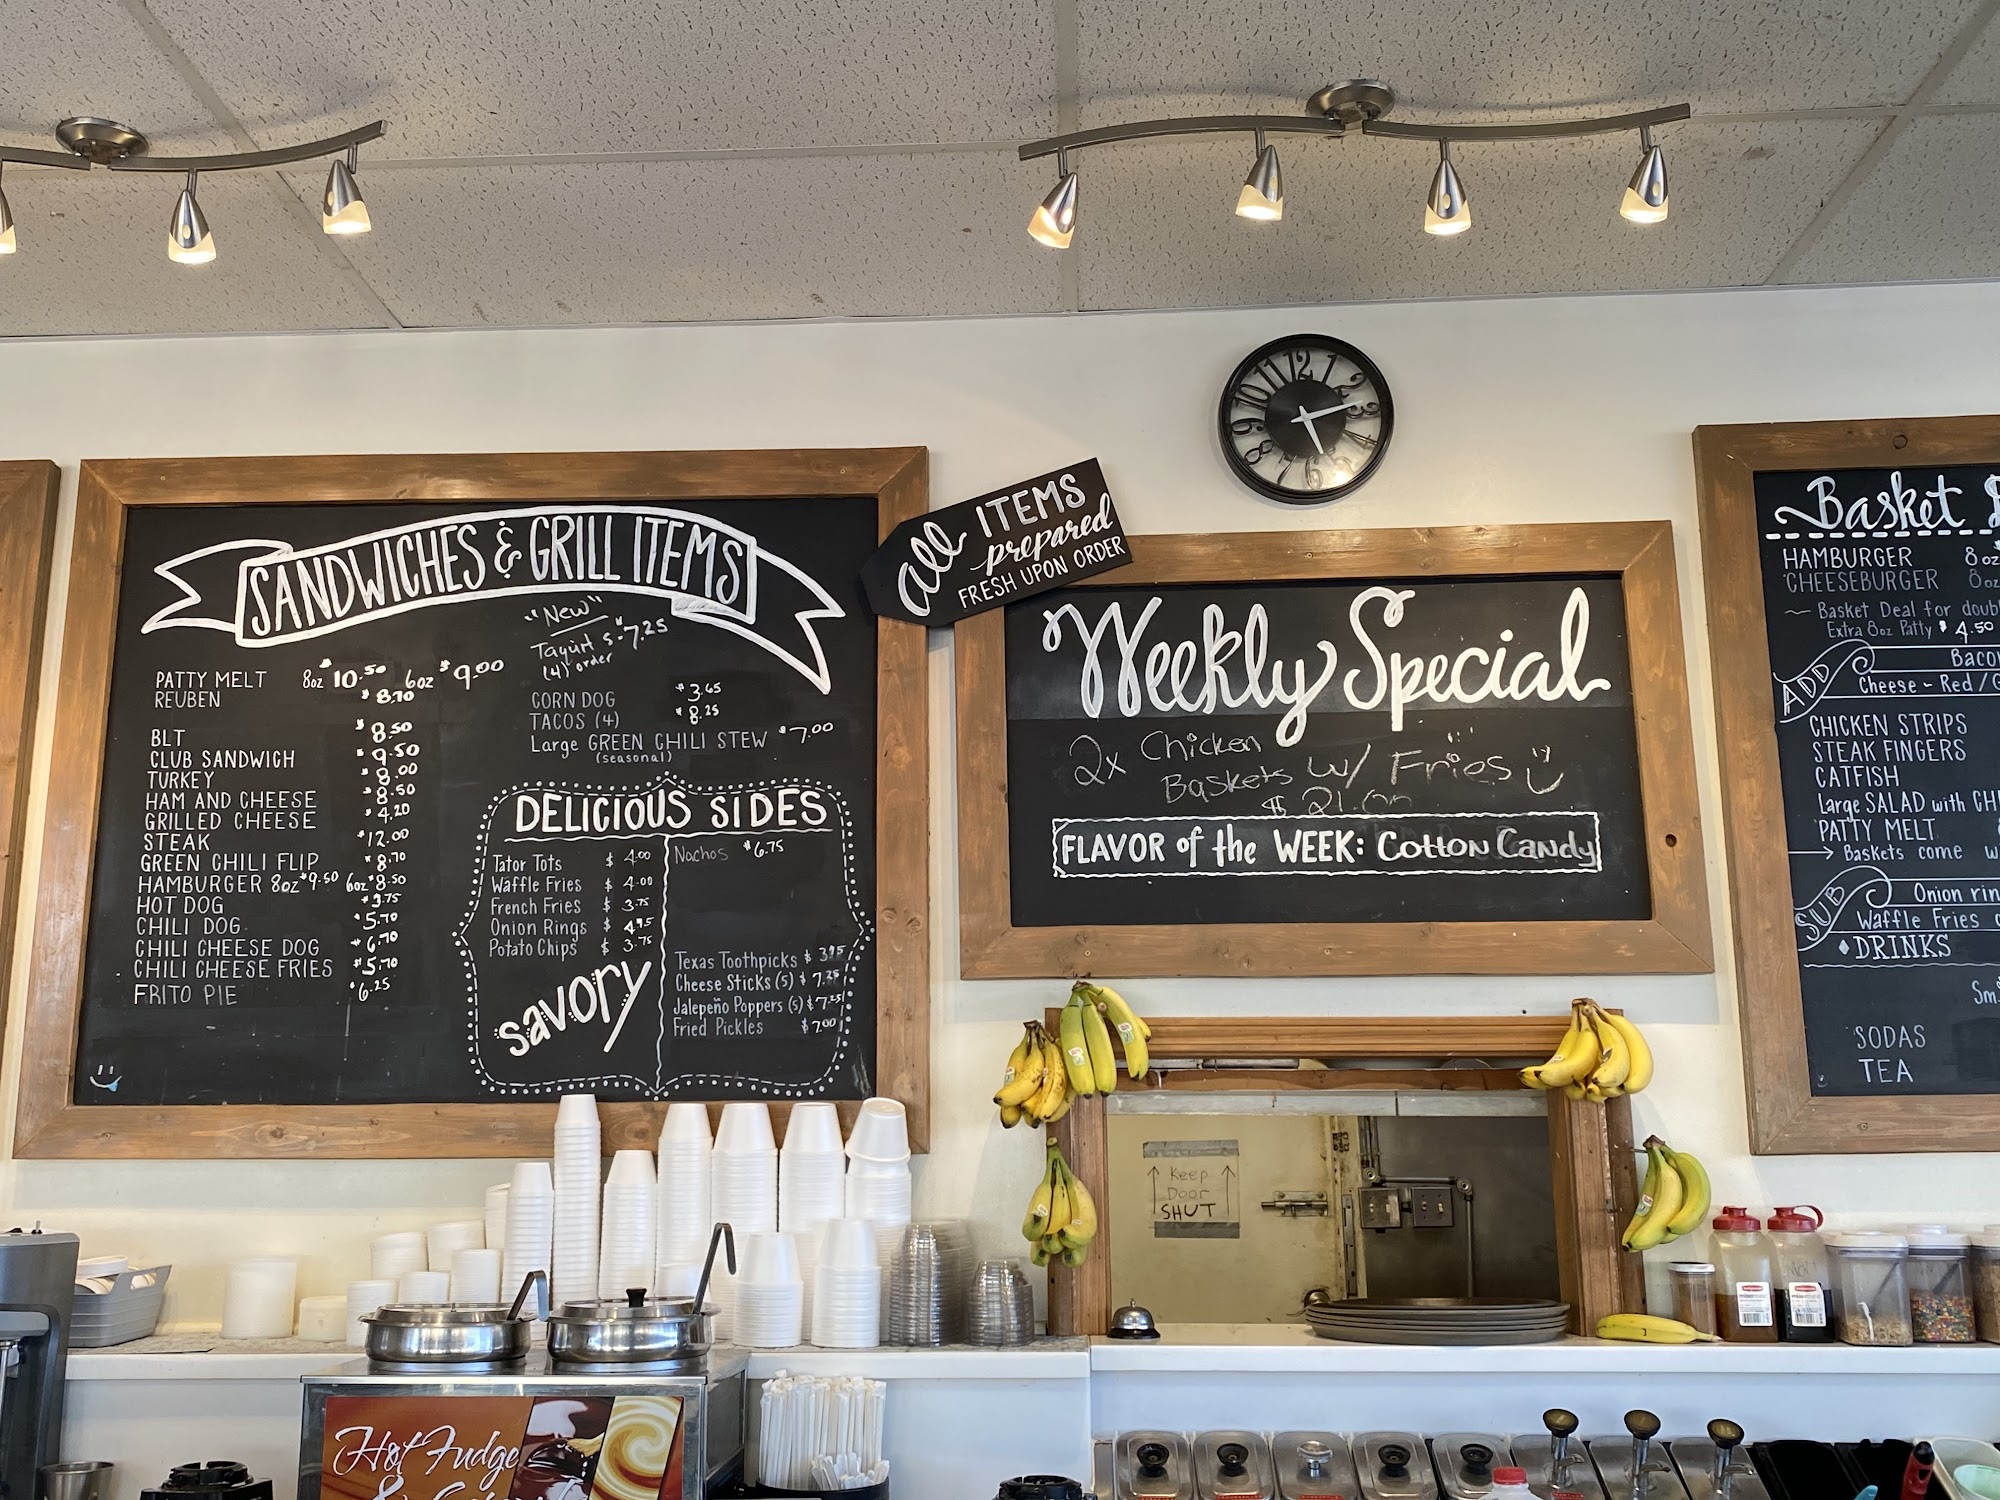 SANDWICHES & GRILL ITEMS
"New"
$7.25
(4) order
PATTY MELT 8oz $10.50 6oz $9.00
REUBEN $8.70
BLT $8.50
CLUB SANDWICH $9.50
TURKEY $8.00
HAM AND CHEESE $8.50
GRILLED CHEESE $4.20
STEAK $12.00
GREEN CHILI FLIP $8.70
HAMBURGER 8oz $9.50 6oz $8.50
HOT DOG $3.75
CHILI DOG $5.70
CHILI CHEESE DOG $6.70
CHILI CHEESE FRIES $5.70
FRITO PIE $6.25
CORN DOG $3.65
TACOS (4) $8.25
Large GREEN CHILI STEW $7.00
(seasonal)
DELICIOUS SIDES
Tator Tots $4.00
Waffle Fries $4.00
French Fries $3.75
Onion Rings $4.95
Potato Chips $3.75
savory
Nachos $6.75
Texas Toothpicks $3.95
Cheese Sticks (5) $7.25
Jalepeño Poppers (5) $7.25
Fried Pickles $7.00
all ITEMS
prepared
FRESH UPON ORDER
12 1 2 3 4 5 6 7 8 9 10 11
Weekly Special
2x Chicken
Baskets w/ Fries
$21.00
FLAVOR of the WEEK: Cotton Candy
Basket
HAMBURGER 8oz
CHEESEBURGER 8oz
Basket Deal for
Extra 8oz Patty $4.50
ADD
Cheese - Red/
CHICKEN STRIPS
STEAK FINGERS
CATFISH
Large SALAD with
PATTY MELT
Baskets come
SUB
Onion
Waffle Fries
DRINKS
Sm
SODAS
TEA
Keep
Door
SHUT
Hot Fudge
&